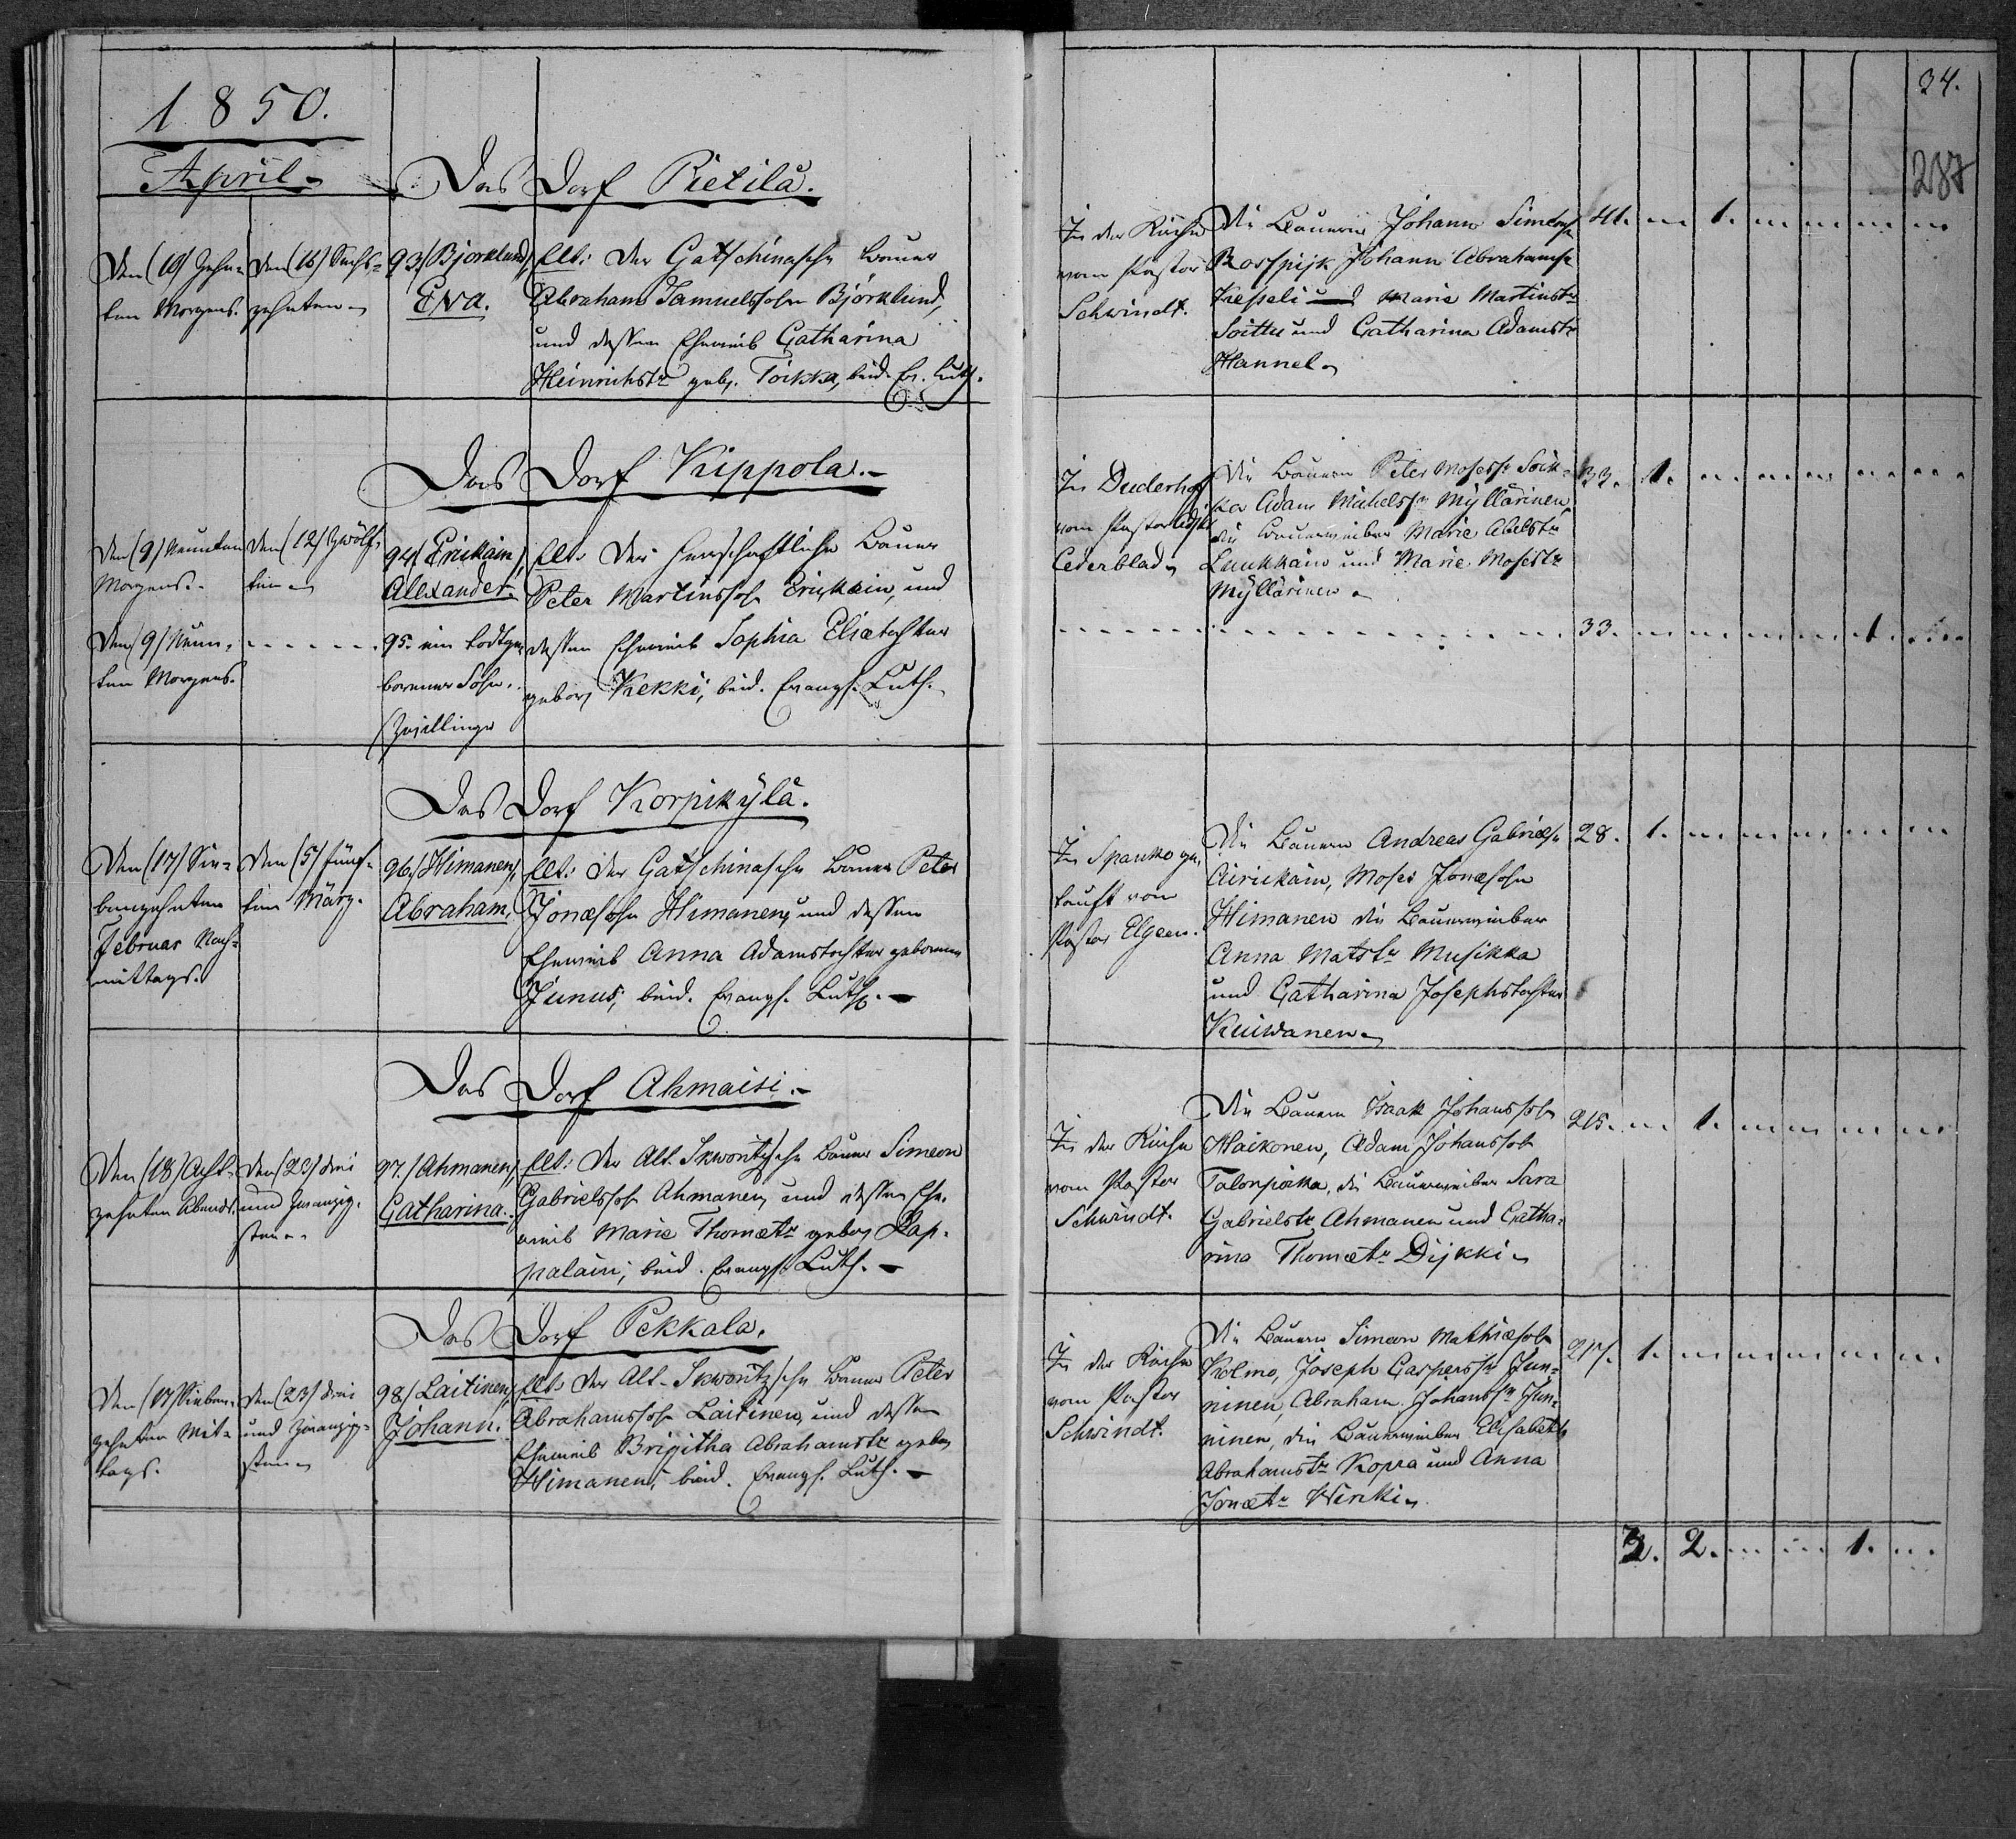 1850.
April
34.
287
Das Dorf Pietilä.
Den (10) Zehn-
ten Morgens.
Den (16) Sechs-
zehnten
93.) Björklund,
Eva.
Elt: Der Gatschinasche Bauer
Abraham Samuelssohn Björklund,
und dessen Eheweib Catharina
Heinrichstr gebr. Toikka, beid. Ev. Luth.
In der Kirche
vom Pastor
Schwindt.
Die Bauern Johann Simeons
Rosspijk Johann Abrahams
Kesseli und Marie Martinstr
Soittu und Catharina Adamstr
Hannel
41. 1.
Das Dorf Kippola.
Den (9) Neunten
Morgens.
Den (12) Zwölf-
ten
94.) Erickäin,
Alexander.
Elt. Der herrschaftliche Bauer
Peter Martinssohn Erickäin, und
In Duderhof
vom Pastor Adjkt
Cederblad
Die Bauern Peter Mosess. Soik-
ka Adam Michelss. Myllärinen,
die Bauerweiber Marie Abelstr
Laukkain und Marie Mosestr
Myllärinen
33. 1.
Den (9) Neun-
ten Morgens.
95. ein todtge-
borener Sohn.
(Zwillinge
dessen Eheweib Sophia Eliætochter
gebor Kekki, beid. Evangl. Luth.
33. 1.
Das Dorf Korpikylä.
Den (17) Sie-
benzehnten
Februar Nach-
mittags.
Den (5) fünf-
ten März.
96.) Himanen,
Abraham,
Elt: Der Gatschinasche Bauer Peter
Jonæsohn Himanen, und dessen
Eheweib Anna Adamstochter geborene
Junus, beid. Evangl. Luth.
In Spanko ge-
tauft vom
Pastor Elgeen.
Die Bauern Andreas Gabriels
Airikäin, Moses Jonæsohn
Himanen die Bauerweiber
Anna Matstr Musikka
und Catharina Josephstochter
Kuiwanen
28. 1.
Das Dorf Ahmaisi.
Den (18) Acht-
zehnten Abends.
Den (23) drei
und zwanzig-
sten
97.) Ahmanen,
Catharina.
Elt: Der Alt. Skworitzsche Bauer Simeon
Gabrielssoh Ahmanen, und dessen Ehe-
weib Marie Thomætr gebor Pap-
palain, beid. Evangl. Luth.
In der Kirche
vom Pastor
Schwindt.
Die Bauern Isaak Johanssohn
Haikonen, Adam Johanssoh
Talonpoika, die Bauerweiber Sara
Gabrielstr Ahmanen und Catha-
rina Thomætr Dijkki
215. 1.
Das Dorf Pekkala.
Den (17) Sieben-
zehnten Mit-
tags.
Den (23) drei
und zwanzig-
sten
98.) Laitinen,
Johann.
Elt: Der Alt-Skworitzsche Bauer Peter
Abrahamssoh Laitinen, und dessen
Eheweib Brigitha Abrahamstr gebor
Himanen, beid. Evangl. Luth.
In der Kirche
vom Pastor
Schwindt.
Die Bauern Simeon Mathiæsoh
Kolmo, Joseph Casperssn Jun-
ninen, Abraham Johanssn Jun-
ninen, die Bauerweiber Elisabeth
Abrahamstr Kopra und Anna
Jonætr Wirki
217. 1.
3. 2. 1.